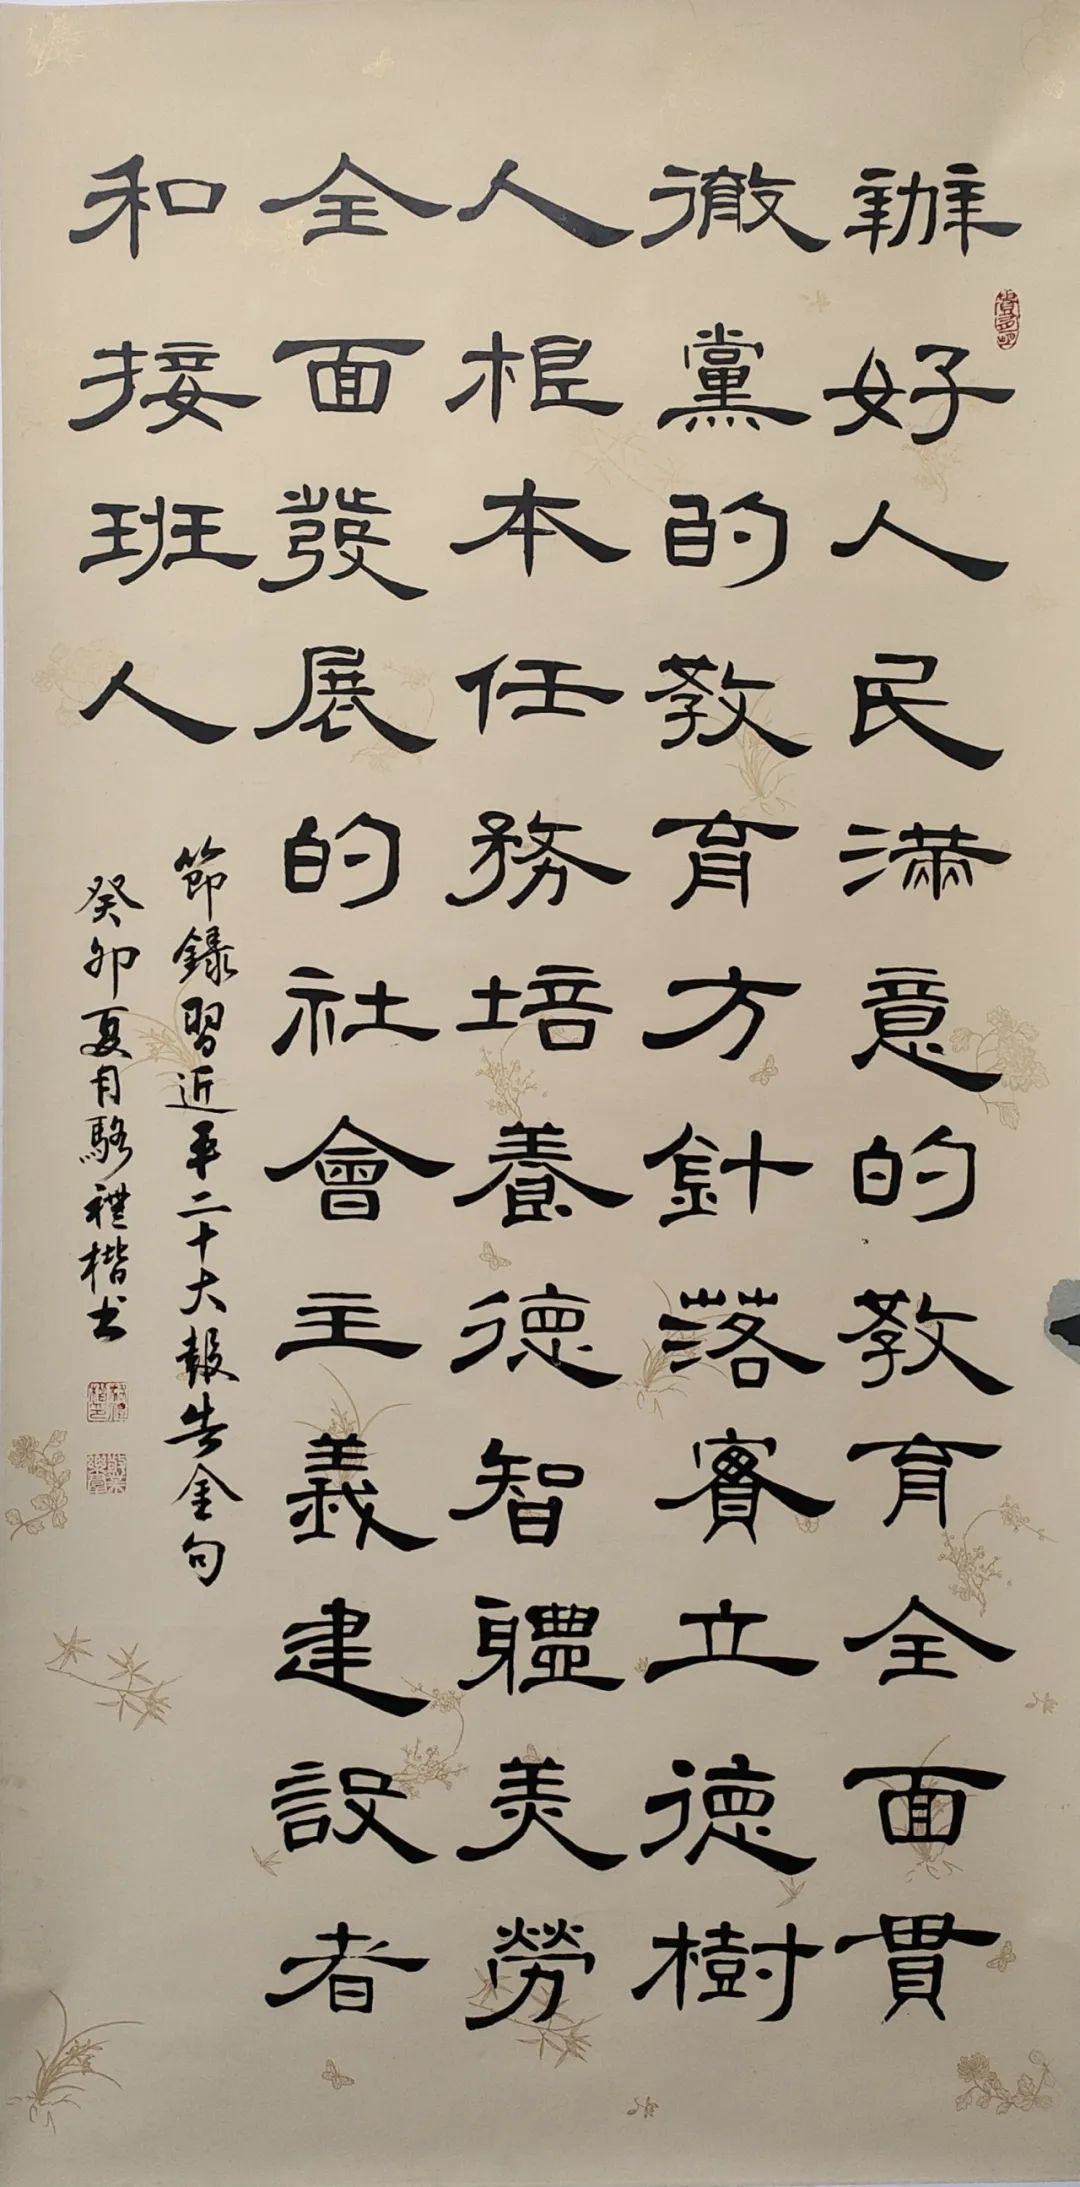 辦好人民滿意的教育全面貫
徹黨的教育方針落實立德樹
人根本任務培養德智體美勞
全面發展的社會主義建設者
和接班人
節錄習近平二十大報告金句
癸卯夏月駱禮楷书